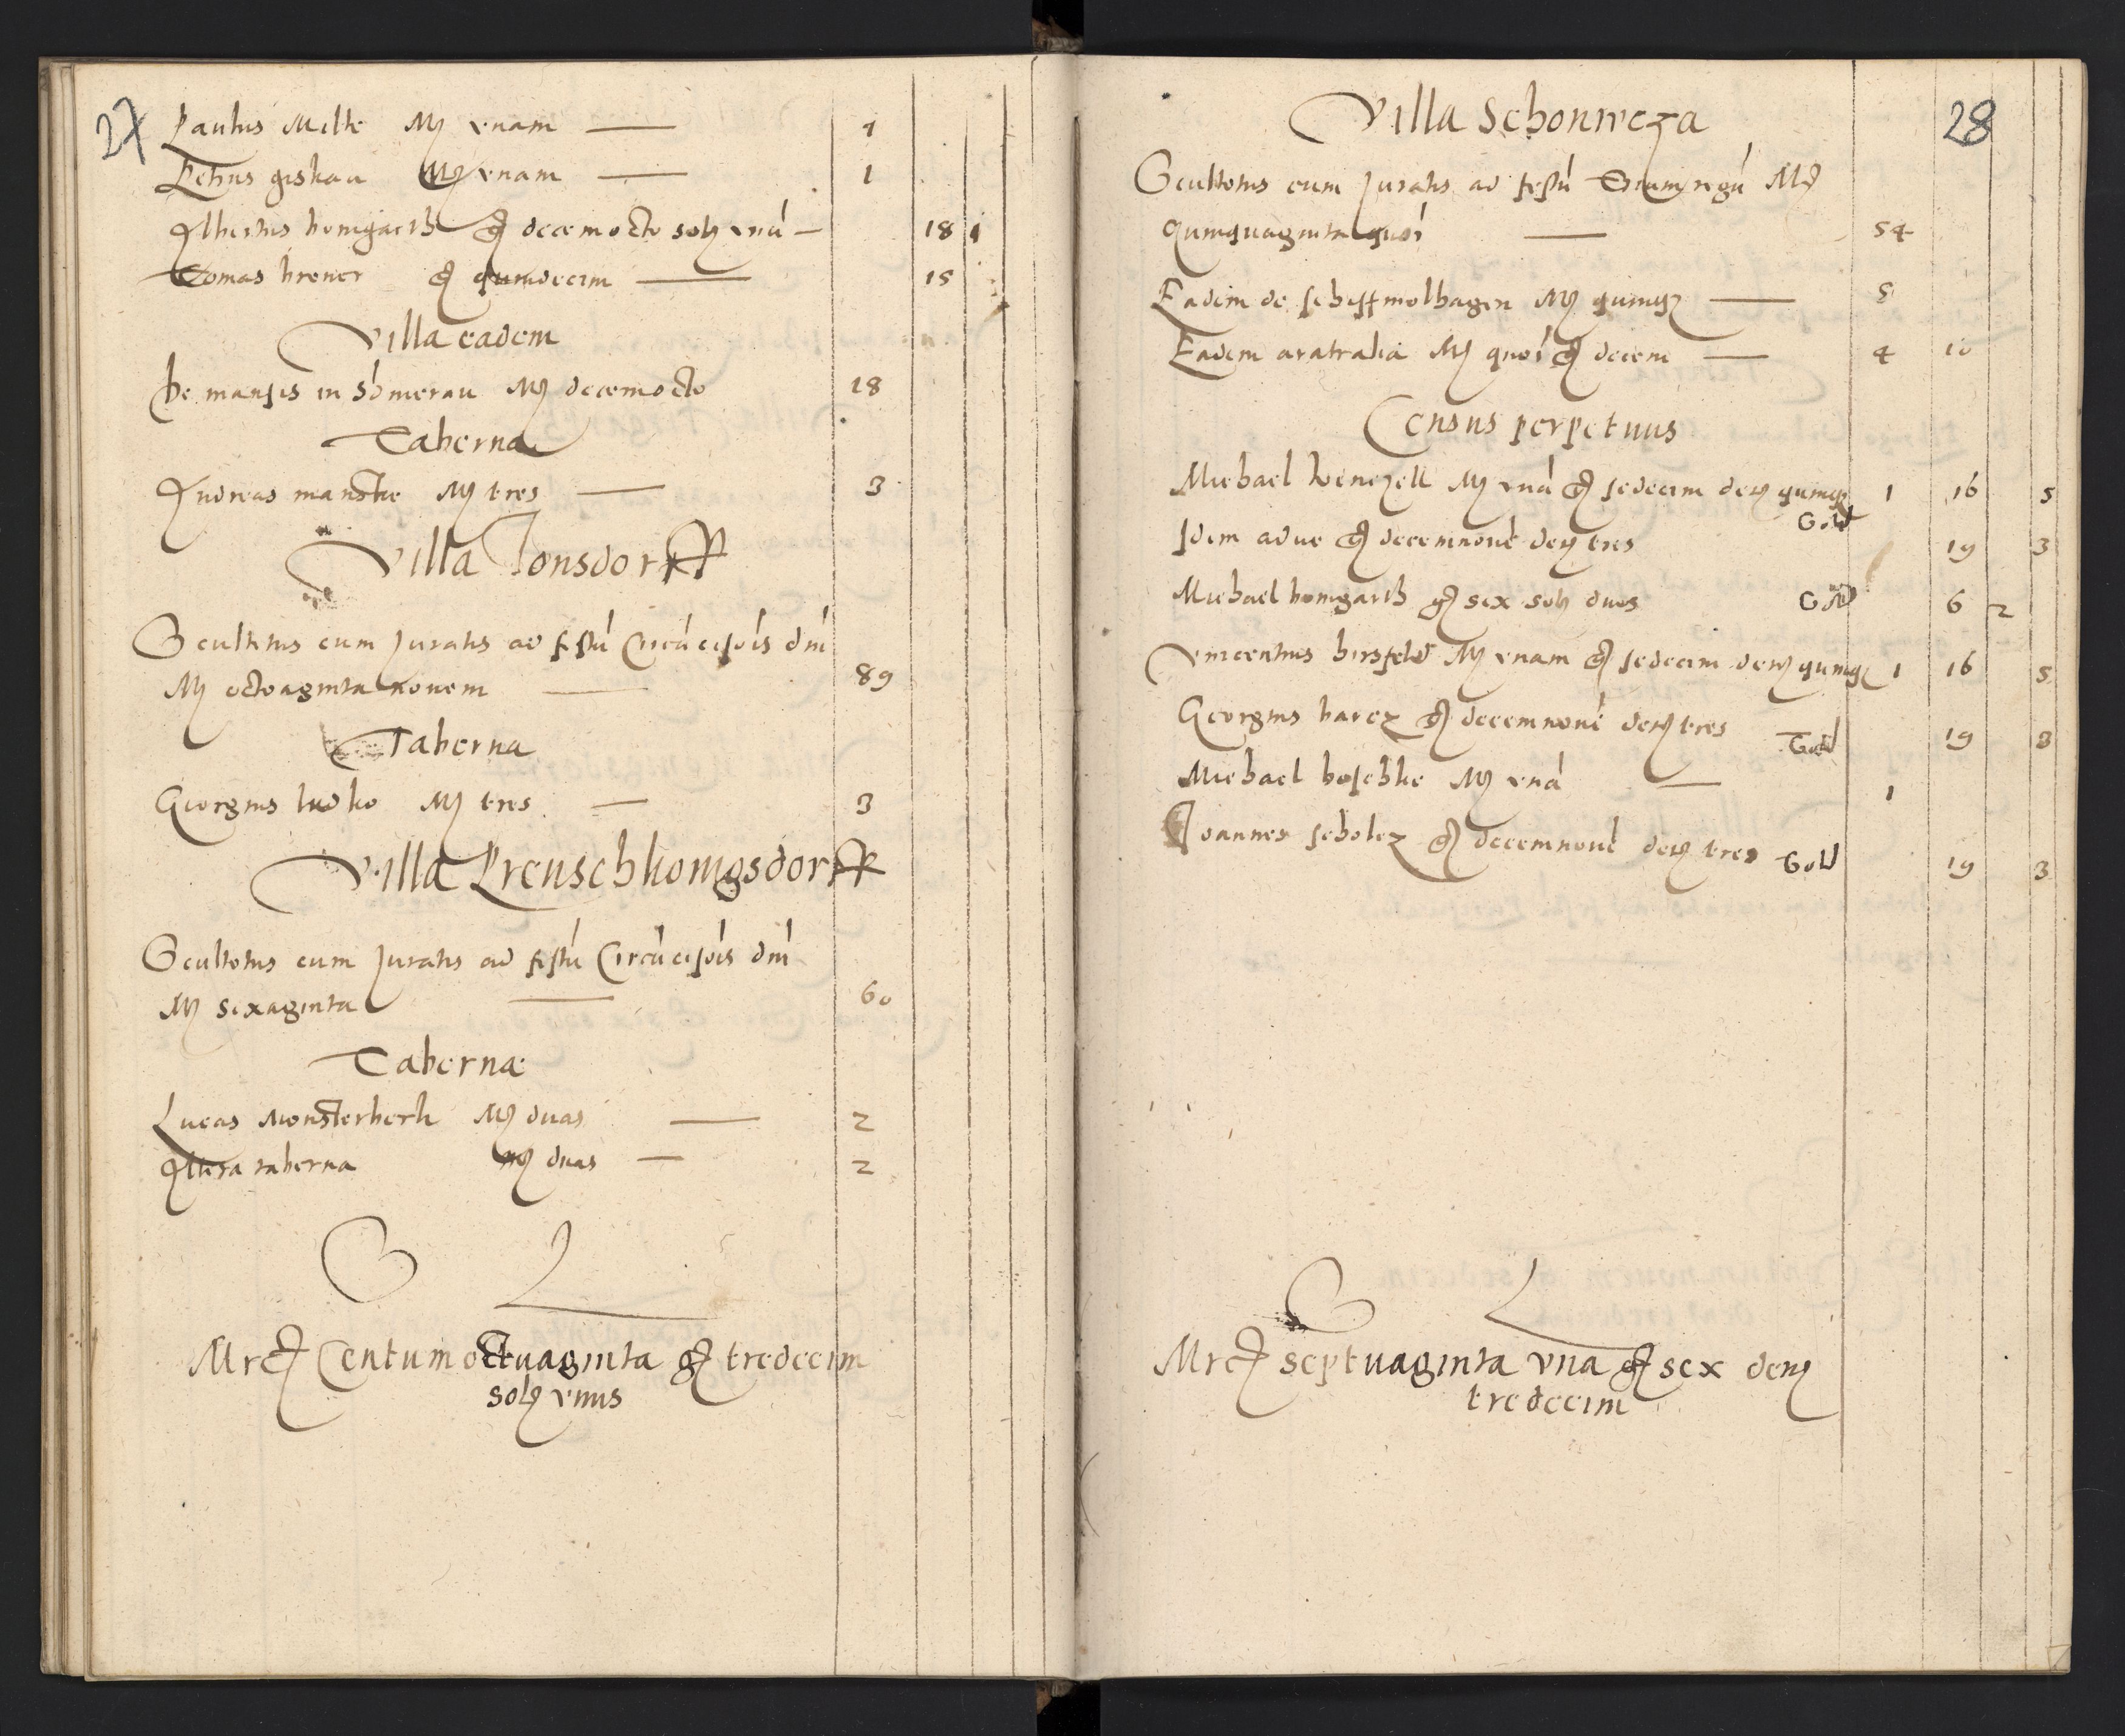 27
Paulus Milke Mr vnam — 1
Petrus giskau Mr vnam — 1
Albertus bomgarth gr decemocto sol vnū — 18 1
Tomas brener gr quindecim — 15
Villa eadem
De mansis in Sōmerau Mr decemocto 18
Taberna
Andreas manske Mr tres — 3
Villa Jonsdorff
Scultetus cum Juratis ad festū Circūcisiōis dnī
Mr octoaginta nouem — 89
Taberna
Georgius ludko Mr tres — 3
Villa Preuschkonigsdorff
Scultetus cum Juratis ad festū Circūcisiōis dnī
Mr sexaginta — 60
Tabernæ
Lucas Monsterberk Mr duas — 2
Altera taberna Mr duas — 2
S L
Mrc Centum octuaginta gr tredecim
sol vnus
28
Villa Schonweza
Scultetus cum Juratis ad festū Trium regū Mr
Quinquaginta quōr — 54
Eadem de schiffmolhagen Mr quinq — 5
Eadem aratralia Mr quōr gr decem — 4 10
Census perpetuus
Michael Wenczell Mr vnā gr sedecim den quinq 1 16 5
Idem aduc gr decemnouē den tres Gold 19 3
Michael bomgarth gr sex sol duos Gold 6 2
Vincentius hirsfeld Mr vnam gr sedecim den quinq 1 16 5
Georgius harcz gr decemnouē den tres Gold 19 3
Michael boschke Mr vnā — 1
Joannes scholcz gr decemnouē den tres Gold 19 3
S L
Mrc septuaginta vna gr sex den
tredecim